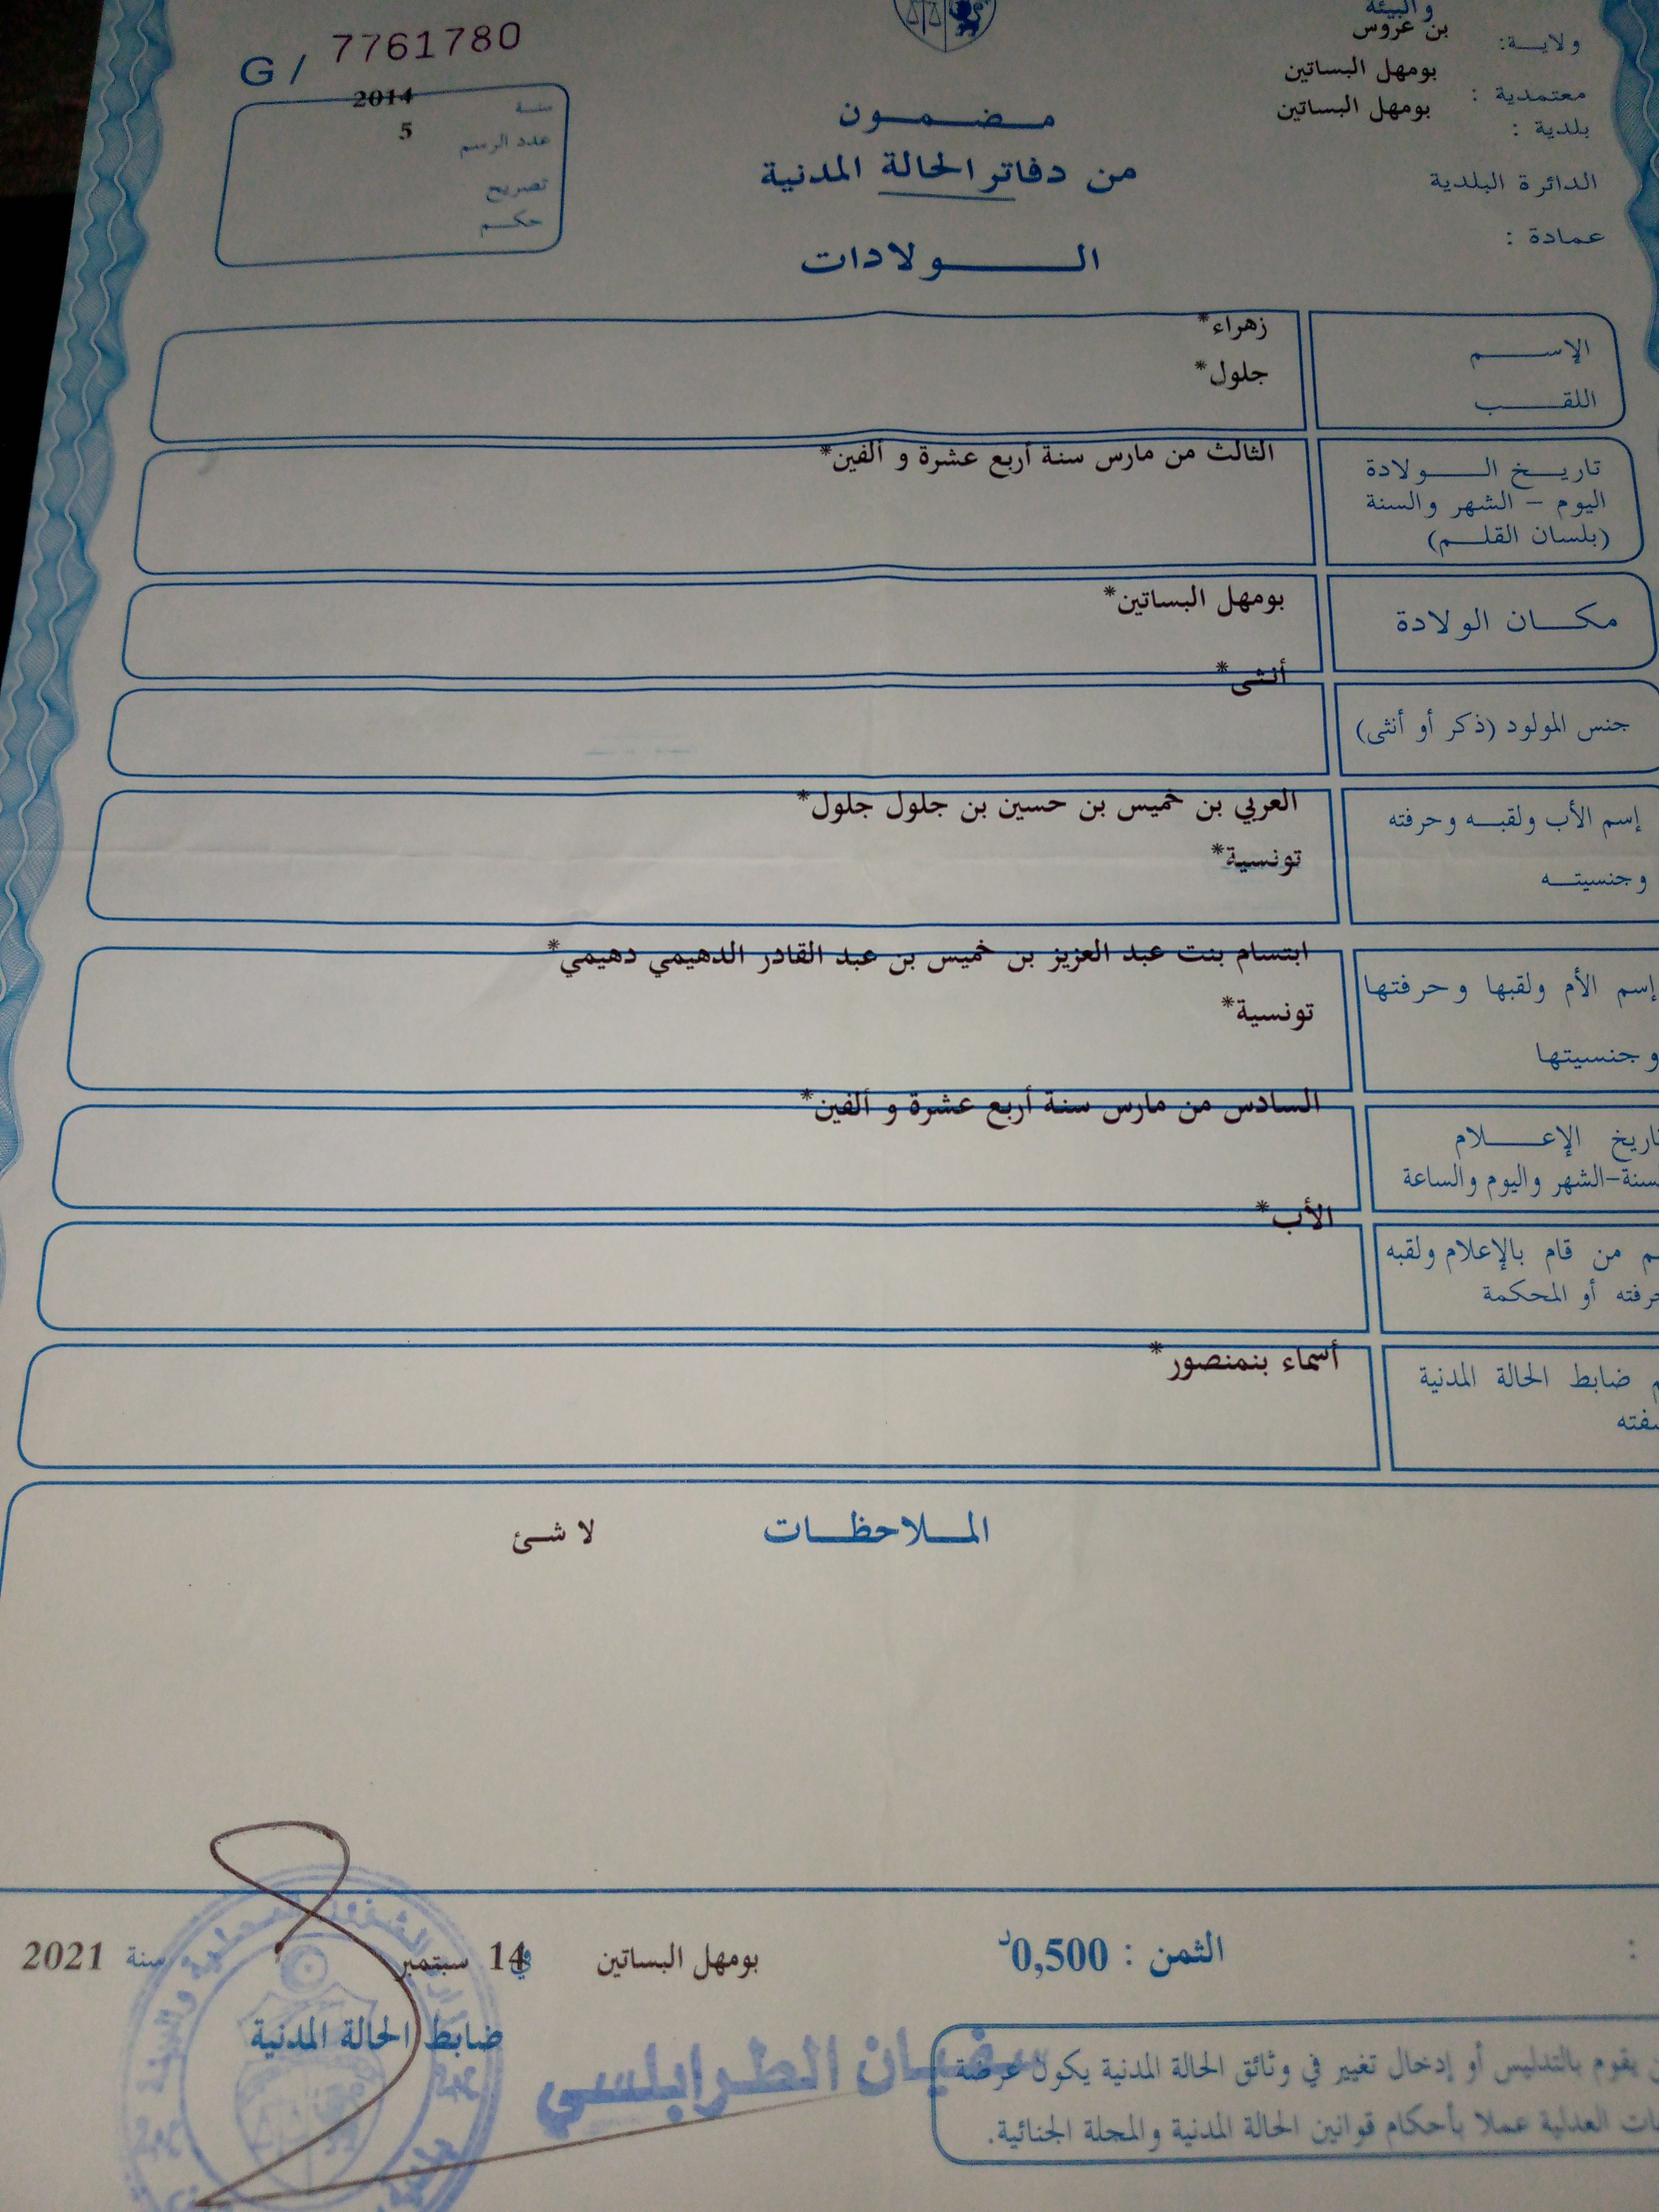 والبيئة
ولاية: بن عروس
معتمدية : بومهل البساتين
بلدية : بومهل البساتين
الدائرة البلدية
عمادة :
G / 7761780
سنة 2014
عدد الرسم 5
تصريح
حكم
مضمون
من دفاتر الحالة المدنية
الولادات
الإسم زهراء*
اللقب جلول*
تاريخ الولادة الثالث من مارس سنة أربع عشرة و ألفين*
اليوم - الشهر والسنة
(بلسان القلم)
مكان الولادة بومهل البساتين*
جنس المولود (ذكر أو أنثى) أنثى*
إسم الأب ولقبه وحرفته العربي بن خميس بن حسين بن جلول جلول*
وجنسيته تونسية*
إسم الأم ولقبها وحرفتها ابتسام بنت عبد العزيز بن خميس بن عبد القادر الدهيمي دهيمي*
وجنسيتها تونسية*
تاريخ الإعلام السادس من مارس سنة أربع عشرة و ألفين*
السنة-الشهر واليوم والساعة
من قام بالإعلام ولقبه الأب*
حرفته أو المحكمة
ضابط الحالة المدنية أسماء بنمنصور*
الملاحظات لا شئ
الثمن : 0,500د
بومهل البساتين في 14 سبتمبر سنة 2021
ضابط الحالة المدنية
سفيان الطرابلسي
يقوم بالتدليس أو إدخال تغيير في وثائق الحالة المدنية يكون عرضة
العدلية عملا بأحكام قوانين الحالة المدنية والمجلة الجنائية.